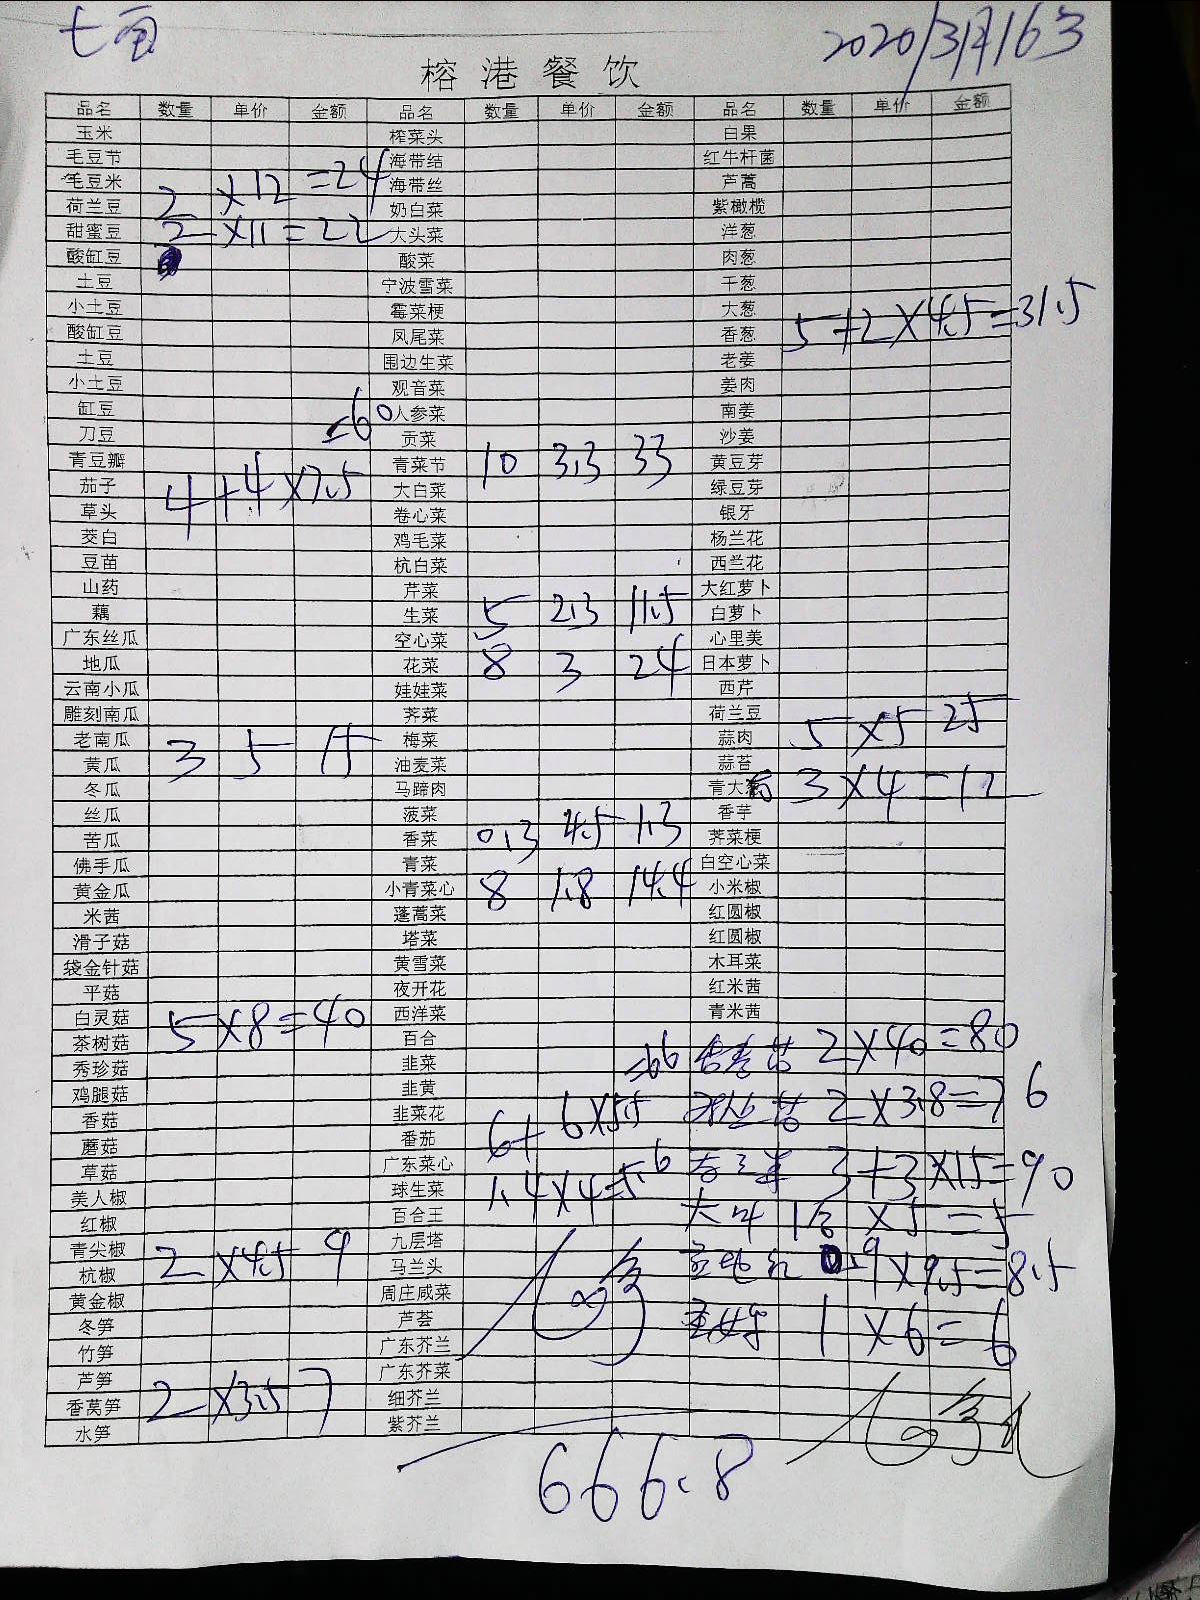 2020/3月16号
榕港餐饮
品名 数量 单价 金额 品名 数量 单价 金额 品名 数量 单价 金额
玉米 榨菜头 白果
毛豆节 海带结 红牛杆菌
毛豆米 2 ×12 =24 海带丝 芦蒿
荷兰豆 奶白菜 紫橄榄
甜蜜豆 2 ×11 =22 大头菜 洋葱
酸缸豆 酸菜 肉葱
土豆 宁波雪菜 干葱
小土豆 霉菜梗 大葱
酸缸豆 凤尾菜 香葱 5+2×4.5=31.5
土豆 围边生菜 老姜
小土豆 观音菜 姜肉
缸豆 =60 人参菜 南姜
刀豆 贡菜 沙姜
青豆瓣 青菜节 10 3.3 33 黄豆芽
茄子 4+4×7.5 大白菜 绿豆芽
草头 卷心菜 银牙
茭白 鸡毛菜 杨兰花
豆苗 杭白菜 西兰花
山药 芹菜 大红萝卜
藕 生菜 5 2.3 11.5 白萝卜
广东丝瓜 空心菜 心里美
地瓜 花菜 8 3 24 日本萝卜
云南小瓜 娃娃菜 西芹
雕刻南瓜 荠菜 荷兰豆
老南瓜 梅菜 蒜肉 5 ×5 25
黄瓜 3 5 15 油麦菜 蒜苔
冬瓜 马蹄肉 青大 3×4=12
丝瓜 菠菜 香芋
苦瓜 香菜 0.3 4.5 1.3 荠菜梗
佛手瓜 青菜 白空心菜
黄金瓜 小青菜心 8 1.8 14.4 小米椒
米茜 蓬蒿菜 红圆椒
滑子菇 塔菜 红圆椒
袋金针菇 黄雪菜 木耳菜
平菇 夜开花 红米茜
白灵菇 5×8=40 西洋菜 青米茜
茶树菇 百合 2×40=80
秀珍菇 韭菜 =66
鸡腿菇 韭黄 2×3.8=7.6
香菇 韭菜花
蘑菇 番茄 6+6×5.5
草菇 广东菜心 3+3×15=90
美人椒 球生菜 1.4×4=5.6
红椒 百合王 大叶 1 ×5=5
青尖椒 九层塔
杭椒 2 ×4.5 9 马兰头 0.9×9.5=8.5
黄金椒 周庄咸菜
冬笋 芦荟 1×6=6
竹笋 广东芥兰
芦笋 广东芥菜
香莴笋 2 ×3.5 7 细芥兰
水笋 紫芥兰
666.8